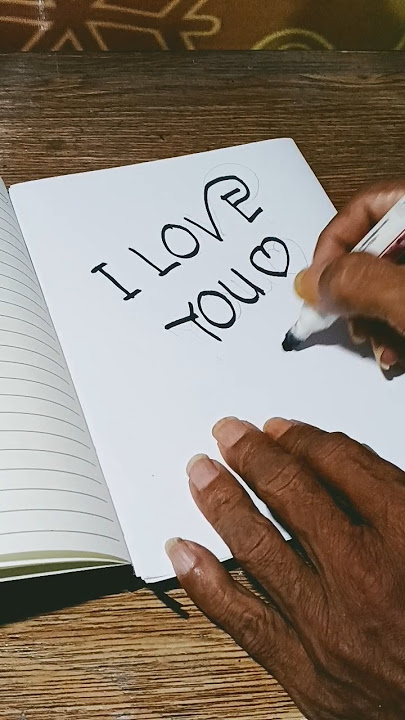 I LOVE
YOU♡